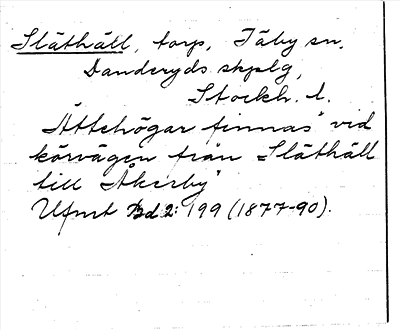 Släthäll, torp, Täby sn,
Danderyds skplg,
Stockh. l.
"Ättehögar finnas" vid
körvägen från Släthäll
till Åkerby"
Ufmt Bd 2: 199 (1877-90).